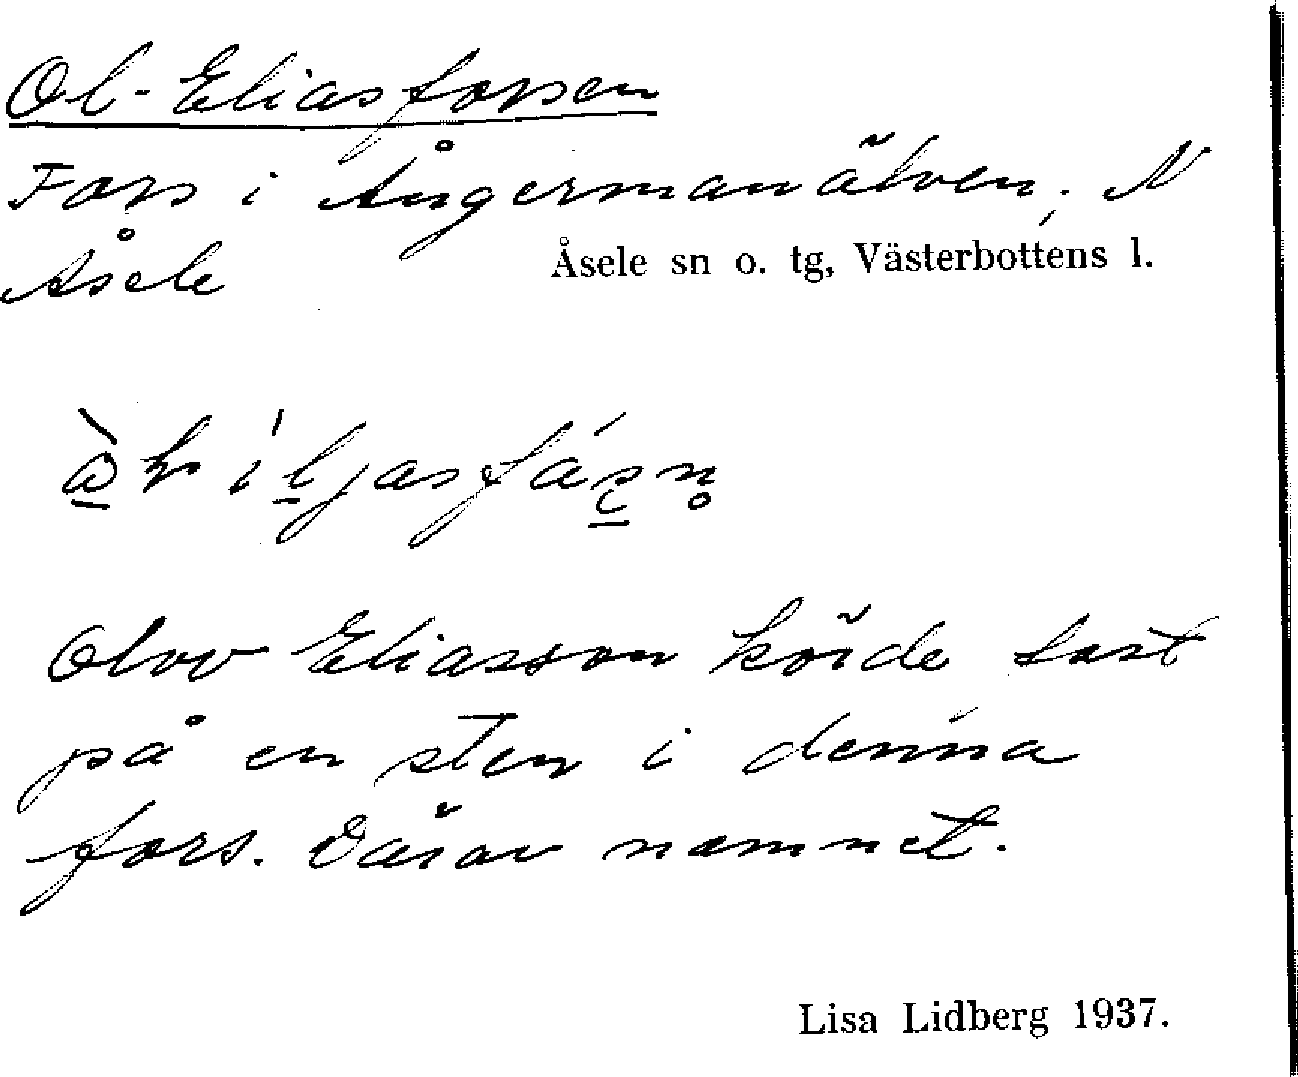 Ol-Eliasforsen
Fors i Ångermanälven; N
Åsele
Åsele sn o. tg, Västerbottens l.
Olov Eliasson körde fast
på en sten i denna
fors. Därav namnet.
Lisa Lidberg 1937.